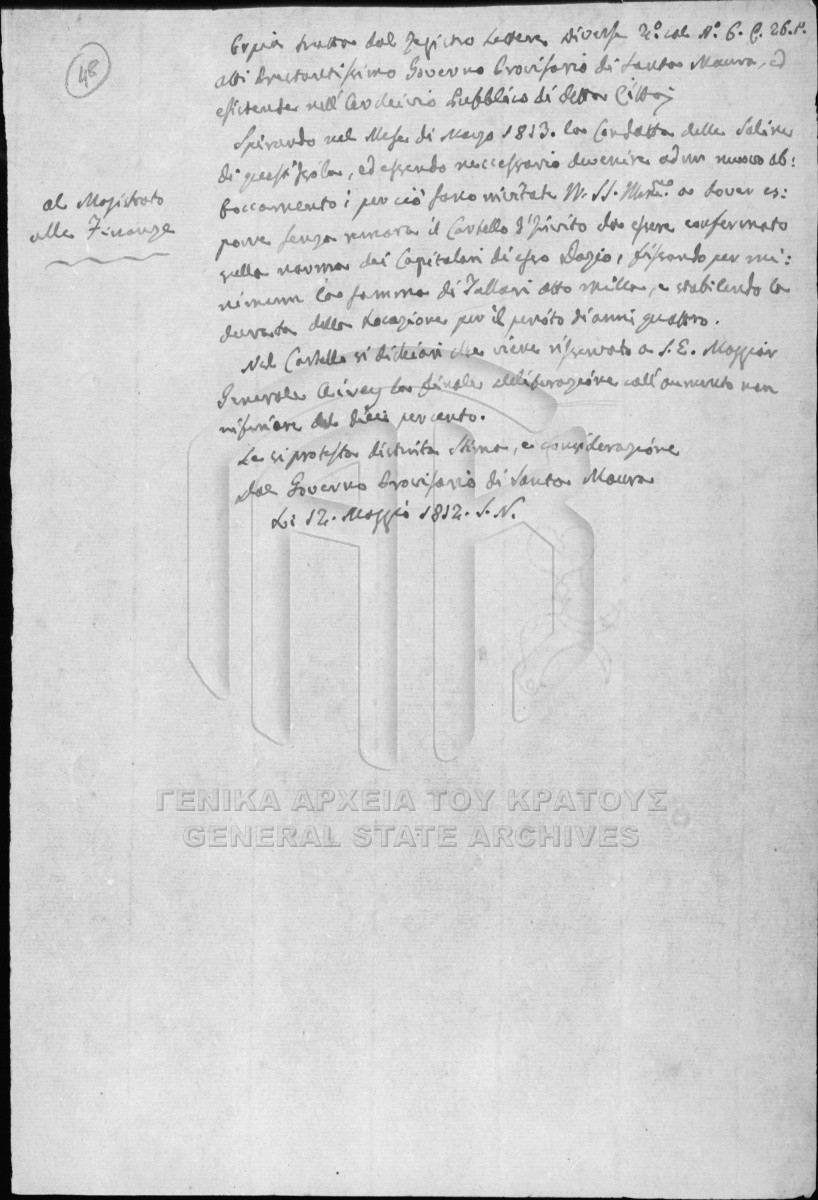 48
Copia tratta dal Registro Lettere Diverse 2.º col N.º 6. C. 26. t.º
atti Prestantissimo Governo Provisorio di Santa Maura, ed
esistente nell'Archivio Pubblico di detta Città
al Magistrato
alle Finanze
Spirando nel Mese di Marzo 1813. la Condotta delle Saline
di quest'Isola, ed essendo neccessario devenire ad un nuovo ab:
boccamento; per ciò sono invitate W. SS. a dover es:
porre senza remora il Cartello d'Invito da essere conformato
sulla norma dei Capitolari di esso Dazio, fissando per mi:
nimum la somma di Tallari otto mille, e stabilendo la
durata della Locazione per il periodo di anni quattro.
Nel Cartello si dichiari che viene riservato a S. E. Maggior
Generale Airey la finale deliberazione coll'aumento non
inferiore del dieci per cento.
Le si protesta distinta Stima, e considerazione
Dal Governo Provisorio di Santa Maura
Li 12. Maggio 1812. S. N.
ΓΕΝΙΚΑ ΑΡΧΕΙΑ ΤΟΥ ΚΡΑΤΟΥΣ
GENERAL STATE ARCHIVES